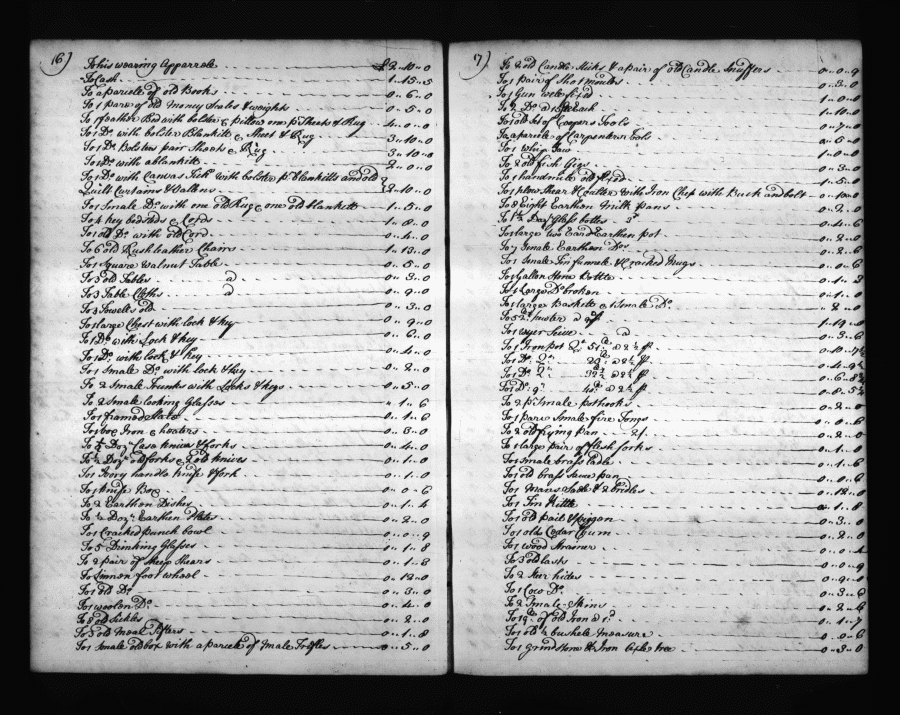 6)
To his wearing Apparrale £2..10..0
To Cash 1..15..5
To a parcele of old Books 0..6..0
To 1 pare of old money Scales & weights 0..5..0
To 1 feather Bed with bolster & pillow one pr Sheets & Rug 4..0..0
To 1 Do with bolster Blankitt & Sheet & Rug 3..10..0
To 1 Do Bolster pair Sheets & Rug 3..10..0
To 1 Do with a blankitt 2..0..0
To 1 Do with Canvas Tick with bolster pr blankitts and old
Quilt Curtains & Vallens 2..10..0
To 1 Smale Do with one old Rug & one old blankett 1..5..0
To 4 hey bedsteds & Cords 1..8..0
To 1 old Do with old Cord 0..4..0
To 6 old Rush leather Chairs 1..13..0
To 1 Square Walnut Table 0..8..0
To 3 old Tables d 0..3..0
To 3 Table Cloths d 0..9..0
To 3 Towells old 0..3..0
To 1 large Chest with lock & key 0..9..0
To 1 Do with Lock & key 0..6..0
To 1 Do with lock & key 0..4..0
To 1 Smale Do with lock & key 0..2..0
To 2 Smale Trunks with Locks & keys 0..5..0
To 2 Smale looking Glasses 1..6
To 1 framed Slate 0..1..6
To 1 box Iron & heaters 0..3..0
To ½ Dozn Case knives & forks 0..4..0
To ½ Dozn old forks & 2 old knives 0..1..0
To 1 Ivory handle knife & fork 0..1..0
To 1 knife Box 0..0..6
To 2 Earthen Dishes 0..1..4
To ½ Dozn Earthen Plates 0..2..0
To 1 Cracked punch bowl 0..0..9
To 5 Drinking Glasses 0..1..8
To 2 pair of Sheep Shears 0..1..8
To 1 Linnen foot wheel 0..12..0
To 1 old Do 0..3..0
To 1 woolen Do 0..4..0
To 8 old Sickles 0..2..0
To 3 old Meal Sifters 0..1..8
To 1 Smale old box with a parcele of Smale Trifles 0..5..0
7)
To 2 old Candle Sticks & a pair of old Candle Snuffers 0..0..9
To 1 pair of Shot moulds 0..3..0
To 1 Gun well fixed 1..0..0
To 2 Do a 1..10..0
To 1 old Set of Coopers Tools 0..7..0
To a parcele of Carpenters Tools 0..6..0
To 1 Whip Saw 1..0..0
To 2 old fish Gigs 0..3..0
To 1 handmill old 1..5..0
To 1 plow Shear & Coulter with Iron Clep with Buck and bolt 0..10..0
To 8 Eight Earthen milk pans 0..2..0
To 1½ Dozn Glass bottles 0..4..6
To 1 large two Eard Earthen pot 0..2..0
To 7 Smale Earthen Dos 0..2..6
To 1 Smale Tin funnele & Cracked Mugs 0..0..6
To 1 Gallon Stone Bottle 0..1..
To 1 Large Do broken 0..1..0
To 1 large Baskett & 1 Smale Do 2..0
To 52 lb puter a 1..19..0
To 1 wyer Sieve d 0..3..6
To 1 Iron pot Qt 51 lb a 2½ P 0..10..7½
To 1 Do Qt 23 lb a 2½ P 0..4..9½
To 1 Do Qt 32½ a 2½ P 0..6..8½
To 1 Do qt 40 lb a 2½ P 0..8..5½
To 2 pr Smale pothooks 0..2..0
To 1 pare Smale fire Tongs 0..0..6
To 2 old frying Pan 2/. 0..2..0
To 1 large pair of flesh forks 0..1..0
To 1 Smale brass Ladle 0..1..6
To 1 old brass Sauce pan 0..0..6
To 1 Mans Sadle & 2 bridles 0..12..0
To 1 Tin Kittle 0..1..8
To 1 old pail & piggon 0..3..0
To 1 old Cedar Churn 0..2..0
To 1 wood Strainer 0..0..4
To 3 old Casks 0..9..0
To 2 Steer hides 0..9..0
To 1 Cow Do 0..3..6
To 2 Smale Skins 0..2..6
To 19 lb of old Iron a 1d 0..1..7
To 1 old ½ bushele measure 0..0..6
To 1 Grindstone & Iron Axle tree 0..3..0